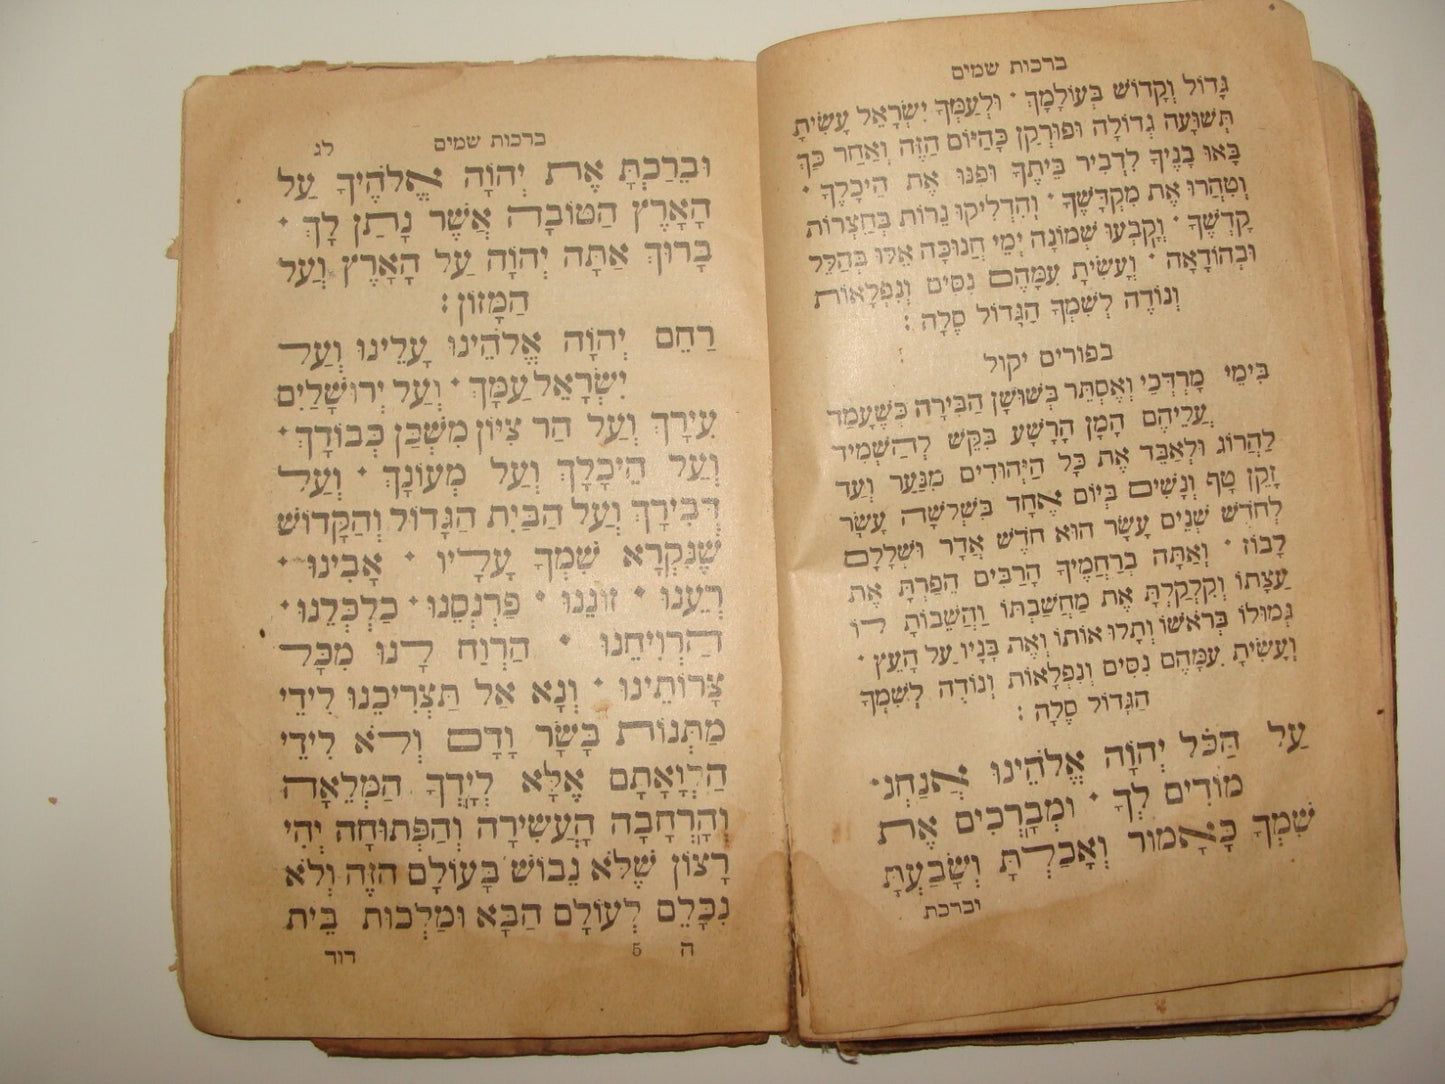 ברכות שמים
גָּדוֹל וְקָדוֹשׁ בְּעוֹלָמָךְ · וּלְעַמְּךָ יִשְׂרָאֵל עָשִׂיתָ
תְּשׁוּעָה גְדוֹלָה וּפוּרְקָן כָּהַיּוֹם הַזֶּה וְאַחַר כָּךְ
בָּאוּ בָנֶיךָ לִדְבִיר בֵּיתֶךָ וּפִנּוּ אֶת הֵיכָלֶךָ ·
וְטִהֲרוּ אֶת מִקְדָּשֶׁךָ · וְהִדְלִיקוּ נֵרוֹת בְּחַצְרוֹת
קָדְשֶׁךָ · וְקָבְעוּ שְׁמוֹנָה יְמֵי חֲנוּכָּה אֵלּוּ בְּהַלֵּל
וּבְהוֹדָאָה · וְעָשִׂיתָ עִמָּהֶם נִסִּים וְנִפְלָאוֹת
וְנוֹדֶה לְשִׁמְךָ הַגָּדוֹל סֶלָה :
בפורים יקול
בִּימֵי מָרְדְּכַי וְאֶסְתֵּר בְּשׁוּשַׁן הַבִּירָה כְּשֶׁעָמַד
עֲלֵיהֶם הָמָן הָרָשָׁע בִּקֵּשׁ לְהַשְׁמִיד
לַהֲרוֹג וּלְאַבֵּד אֶת כָּל הַיְּהוּדִים מִנַּעַר וְעַד
זָקֵן טַף וְנָשִׁים בְּיוֹם אֶחָד בִּשְׁלֹשָׁה עָשָׂר
לְחֹדֶשׁ שְׁנֵים עָשָׂר הוּא חֹדֶשׁ אֲדָר וּשְׁלָלָם
לָבוֹז · וְאַתָּה בְרַחֲמֶיךָ הָרַבִּים הֵפַרְתָּ אֶת
עֲצָתוֹ וְקִלְקַלְתָּ אֶת מַחֲשַׁבְתּוֹ וַהֲשֵׁבוֹתָ לוֹ
גְּמוּלוֹ בְּרֹאשׁוֹ וְתָלוּ אוֹתוֹ וְאֶת בָּנָיו עַל הָעֵץ ·
וְעָשִׂיתָ עִמָּהֶם נִסִּים וְנִפְלָאוֹת וְנוֹדֶה לְשִׁמְךָ
הַגָּדוֹל סֶלָה :
עַל הַכֹּל יְהוָֹה אֱלֹהֵינוּ אֲנַחְנוּ
מוֹדִים לָךְ · וּמְבָרְכִים אֶת
שְׁמָךְ כָּאָמוּר וְאָכַלְתָּ וְשָׂבַעְתָּ
וברכת
ברכות שמים לג
וּבֵרַכְתָּ אֶת יְהוָֹה אֱלֹהֶיךָ עַל
הָאָרֶץ הַטּוֹבָה אֲשֶׁר נָתַן לָךְ ·
בָּרוּךְ אַתָּה יְהוָֹה עַל הָאָרֶץ וְעַל
הַמָּזוֹן :
רַחֵם יְהוָֹה אֱלֹהֵינוּ עָלֵינוּ וְעַל
יִשְׂרָאֵל עַמָּךְ · וְעַל יְרוּשָׁלַיִם
עִירָךְ וְעַל הַר צִיּוֹן מִשְׁכַּן כְּבוֹדָךְ ·
וְעַל הֵיכָלָךְ וְעַל מְעוֹנָךְ · וְעַל
דְּבִירָךְ וְעַל הַבַּיִת הַגָּדוֹל וְהַקָּדוֹשׁ
שֶׁנִּקְרָא שִׁמְךָ עָלָיו · אָבִינוּ ·
רְעֵנוּ · זוּנֵנוּ · פַּרְנְסֵנוּ · כַּלְכְּלֵנוּ ·
הַרְוִיחֵנוּ · הַרְוַח לָנוּ מִכָּל
צָרוֹתֵינוּ · וְנָא אַל תַּצְרִיכֵנוּ לִידֵי
מַתְּנוֹת בָּשָׂר וָדָם וְלֹא לִידֵי
הַלְוָאָתָם אֶלָּא לְיָדְךָ הַמְּלֵאָה
וְהָרְחָבָה הָעֲשִׁירָה וְהַפְּתוּחָה יְהִי
רָצוֹן שֶׁלֹּא נֵבוֹשׁ בָּעוֹלָם הַזֶּה וְלֹא
נִכָּלֵם לְעוֹלָם הַבָּא וּמַלְכוּת בֵּית
ה 5 דוד